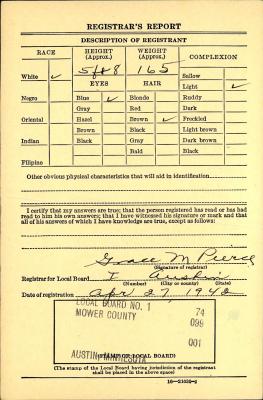 REGISTRAR'S REPORT
DESCRIPTION OF REGISTRANT
RACE HEIGHT (Approx.) WEIGHT (Approx.) COMPLEXION
5 ft 8 165
White ✓ Sallow
EYES HAIR Light ✓
Negro Blue ✓ Blonde Ruddy
Gray Red Dark
Oriental Hazel Brown ✓ Freckled
Brown Black Light brown
Indian Black Gray Dark brown
Bald Black
Filipino
Other obvious physical characteristics that will aid in identification
I certify that my answers are true; that the person registered has read or has had
read to him his own answers; that I have witnessed his signature or mark and that
all of his answers of which I have knowledge are true, except as follows:
Grace M Pierce
(Signature of registrar)
Registrar for Local Board I Austin
(Number) (City or county) (State)
Date of registration Apr 27 1942
LOCAL BOARD NO. 1
MOWER COUNTY
74
099
001
AUSTIN, MINNESOTA
(STAMP OF LOCAL BOARD)
(The stamp of the Local Board having jurisdiction of the registrant
shall be placed in the above space)